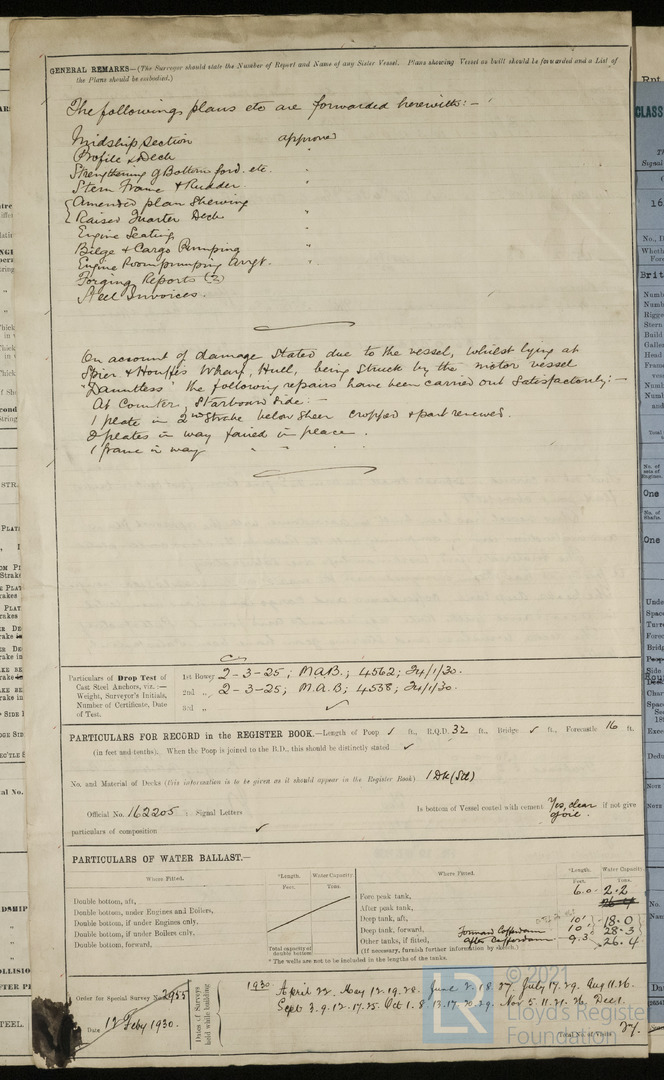 GENERAL REMARKS—(The Surveyor should state the Number of Report and Name of any Sister Vessel. Plans showing Vessel as built should be forwarded and a List of
the Plans should be embodied.)
The followings plans etc are forwarded herewith:—
Midship Section approved
Profile & Deck "
Strengthening of Bottom ford. etc. "
Stern Frame & Rudder "
Amended plan Shewing
Raised Quarter Deck "
Engine Seating "
Bilge & Cargo Pumping "
Engine Room pumping Arrgt. "
Forging Reports (2)
Steel Invoices.
On account of damage Stated due to the vessel, whilst lying at
Spier & Wharf, Hull, being struck by the motor vessel
"Dauntless" the following repairs have been carried out satisfactorily:—
At Counter, Starboard Side:—
1 plate in 2nd Strake below Sheer cropped & part renewed.
2 plates in way faired in place.
1 frame in way " " "
Particulars of Drop Test of
Cast Steel Anchors, viz.:—
Weight, Surveyor's Initials,
Number of Certificate, Date
of Test.
1st Bower 2-3-25; M.A.B.; 4562; 24/1/30.
2nd " 2-3-25; M.A.B.; 4538; 24/1/30.
3rd " ✓
PARTICULARS FOR RECORD in the REGISTER BOOK.—Length of Poop ✓ ft., R.Q.D. 32 ft., Bridge ✓ ft., Forecastle 16 ft.
(in feet and tenths). When the Poop is joined to the B.D., this should be distinctly stated ✓
No. and Material of Decks (this information is to be given as it should appear in the Register Book) 1 Dk (Stl)
Official No. 162205 ; Signal Letters Is bottom of Vessel coated with cement Yes, clear of oil. if not give
particulars of composition ✓
PARTICULARS OF WATER BALLAST.—
Where Fitted. *Length. Water Capacity Where Fitted. *Length. Water Capacity
Feet. Tons. Feet. Tons.
Double bottom, aft,
Double bottom, under Engines and Boilers,
Double bottom, if under Engines only,
Double bottom, if under Boilers only,
Double bottom, forward,
Total capacity of double bottom
Fore peak tank, 6.0 2.2
After peak tank,
Deep tank, aft, 10' 18.0
Deep tank, forward, Forward Cofferdam 10' 28.3
Other tanks, if fitted, After Cofferdam 9.3 26.4
(If necessary, furnish further information by sketch.)
* The wells are not to be included in the lengths of the tanks.
Order for Special Survey No. 2955
Date 12 Feby 1930.
Dates of Surveys held while building
1930 April 22. May 12.19.28. June 2.18.27. July 17.29. Aug 11.26.
Sept 3.9.12.17.25. Oct 1.8.13.17.20.29. Nov 5.11.21.26. Dec 1.
Total No. of Visits 27.
© 2021
Lloyd's Register
Foundation
LR